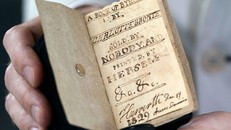 A BOOK OF RYMES
BY
CHARLOTTE BRONTE
SOLD BY
NOBODY AND
PRINTED BY
HERSELF
&c. &c.
Haworth Dec 17
1829